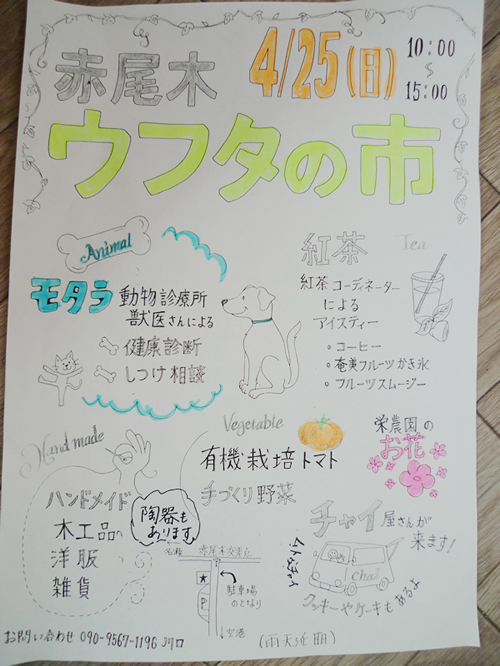 赤尾木
4/25(日)
10:00
〜
15:00
ウフタの市
Animal
モタラ 動物診療所
獣医さんによる
健康診断
しつけ相談
紅茶 Tea
紅茶コーディネーター
による
アイスティー
・コーヒー
・奄美フルーツかき氷
・フルーツスムージー
Hand made
ハンドメイド
木工品
洋服
雑貨
陶器も
あります
Vegetable
有機栽培トマト
手づくり野菜
栄農園の
お花
チャイ屋さんが
来ます!
Chai
クッキーやケーキもあるよ
名瀬
赤尾木交差点
★
P
駐車場
のとなり
↓空港
(雨天延期)
お問い合わせ 090-9567-1196